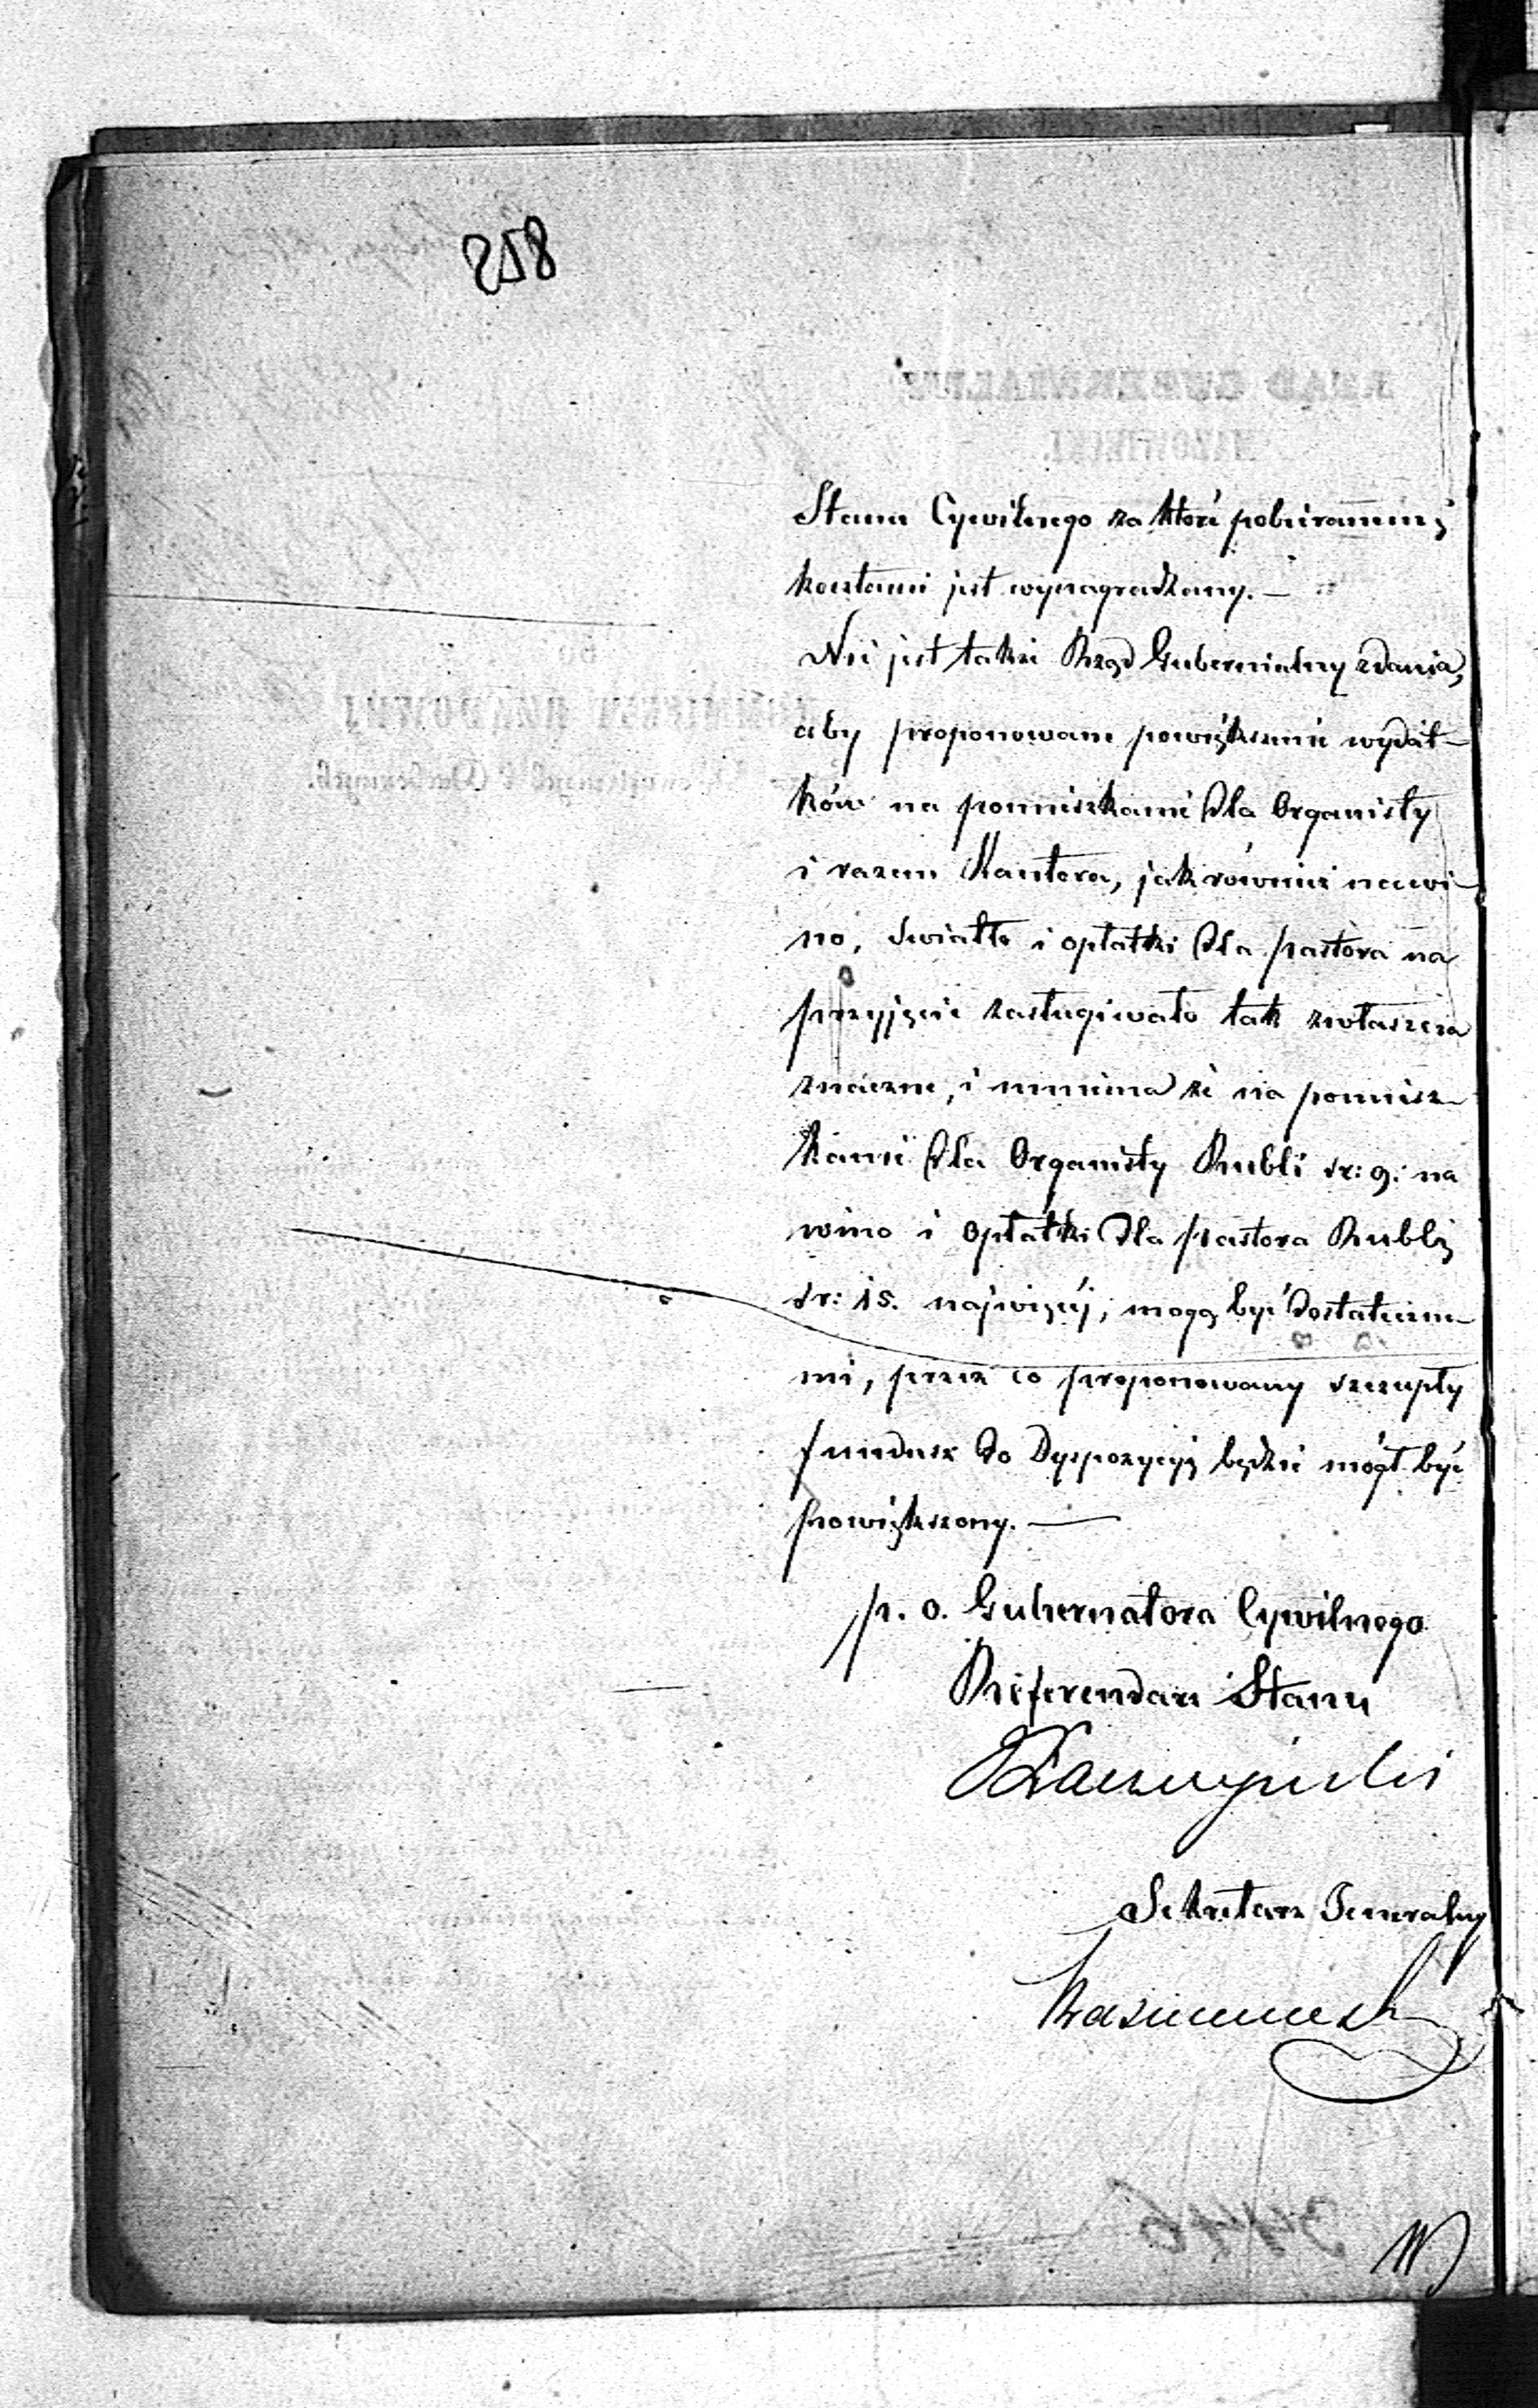 Stanu Cywilnego za które pobieranemi
kosztami jest wynagradzany. —
Nie jest także Rząd Gubernialny zdania,
aby proponowane powiększenie wydat-
ków na pomieszkanie dla Organisty
i razem Kantora, jak również na wi-
no, światło i opłatki dla pastora na
przyjęcie zasługiwało tak zwłaszcza
znaczne, i mniema że na pomiesz-
kanie dla Organisty Rubli sr: 9. na
wino i opłatki dla pastora Rubli
sr: 15. najwięcéj, mogą być dostateczne-
mi, przez co proponowany szczupły
fundusz do Dyspozycyi będzie mógł być
powiększony. —
p. o. Gubernatora Cywilnego
Referendarz Stanu
Sekretarz Jeneralny